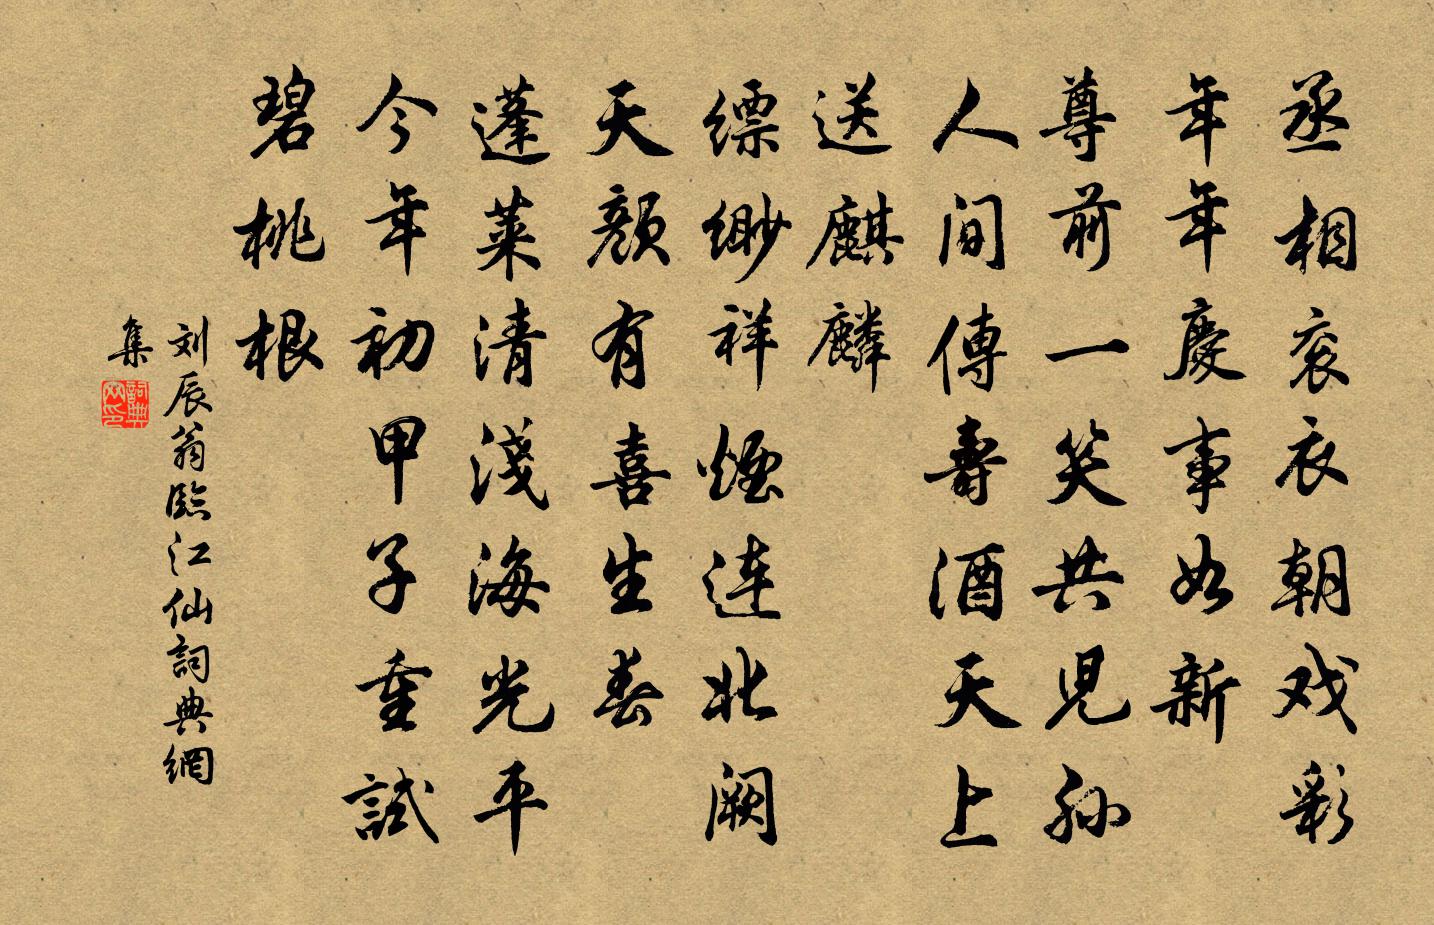 丞相衮衣朝戏彩
年年慶事如新
尊前一笑共児孙
人间傳壽酒天上
送麒麟
缥缈祥煙连北阙
天颜有喜生春
蓬莱清淺海光平
今年初甲子重試
碧桃根
刘辰翁臨江仙詞典網
集
詞典網印